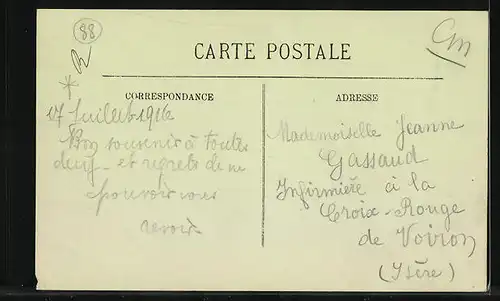 88
CARTE POSTALE
CORRESPONDANCE
17 Juillet 1916
Bon souvenir à toutes
deux - et regrets de ne
pouvoir vous
revoir
ADRESSE
Mademoiselle Jeanne
Gassaud
Infirmière à la
Croix-Rouge
de Voiron
(Isère)